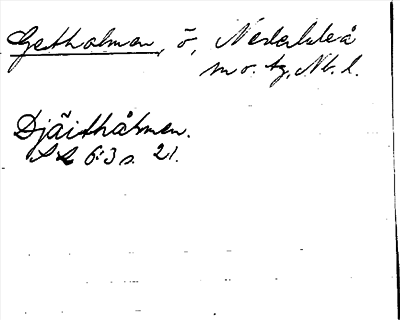 Getholmen, ö, Nederluleå
sn o. tg, Nb. l.
Djäithåłmen.
LL 6:3 s. 21.